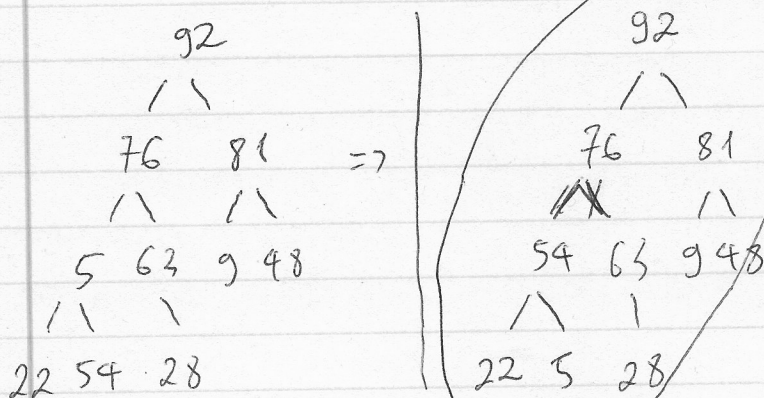 92
76 81 =>
5 63 9 48
22 54 28
92
76 81
54 63 9 48
22 5 28